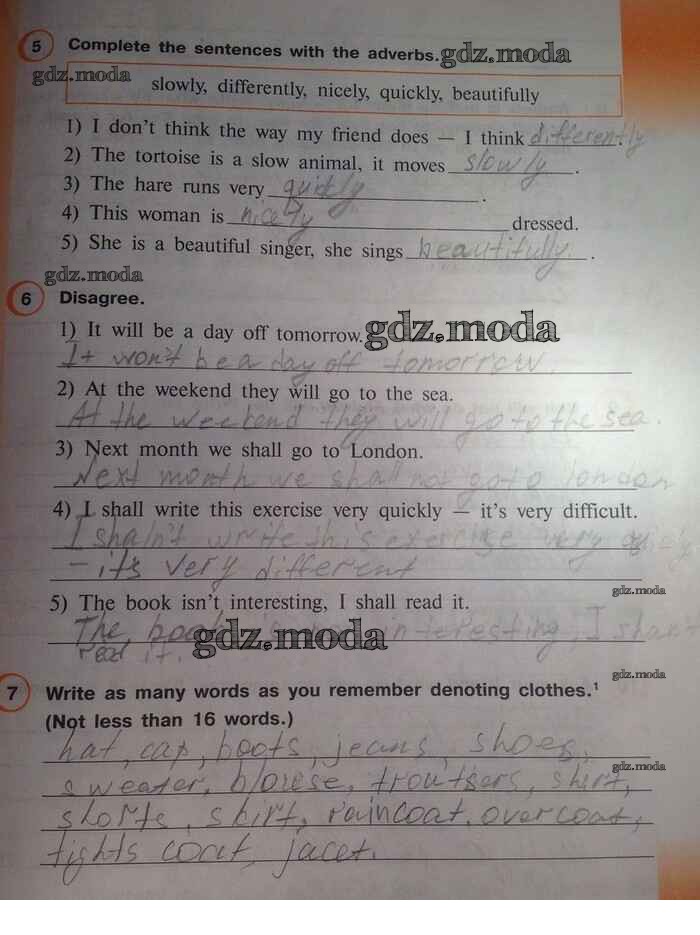 5 Complete the sentences with the adverbs. gdz.moda
gdz.moda
slowly, differently, nicely, quickly, beautifully
1) I don't think the way my friend does — I think differently.
2) The tortoise is a slow animal, it moves slowly.
3) The hare runs very quickly.
4) This woman is nicely dressed.
5) She is a beautiful singer, she sings beautifully.
gdz.moda
6 Disagree.
1) It will be a day off tomorrow. gdz.moda
It won't be a day off tomorrow.
2) At the weekend they will go to the sea.
At the weekend they will go to the sea.
3) Next month we shall go to London.
Next month we shall not go to london
4) I shall write this exercise very quickly — it's very difficult.
I shaln't write this exercise very quickly
- it's very different
gdz.moda
5) The book isn't interesting, I shall read it.
The book interesting, I shan't
gdz.moda
read it.
gdz.moda
7 Write as many words as you remember denoting clothes.¹
(Not less than 16 words.)
hat, cap, boots, jeans, shoes,
gdz.moda
sweater, blouese, troutsers, shirt,
shorts, skirt, raincoat, overcoat,
tights coat, jacet.